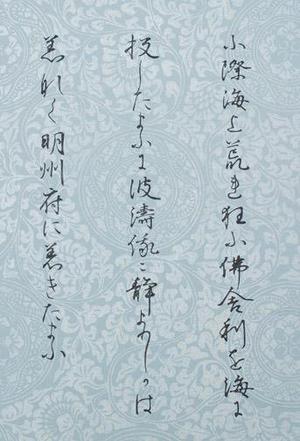 ふ際海上荒れ狂ふ佛舎利を海に
投したまふに波濤俄に静まりしかは
恙なく明州府に着きたまふ